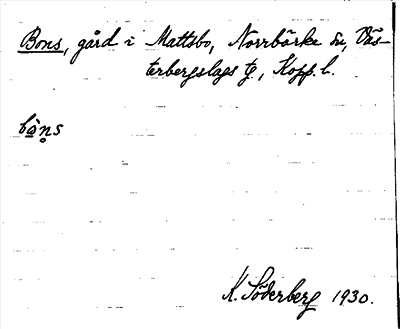 Bons, gård i Mattsbo, Norrbärke sn, Väs-
terbergslags tg, Kopp. l.
bå̀n̥s
K. Söderberg 1930.